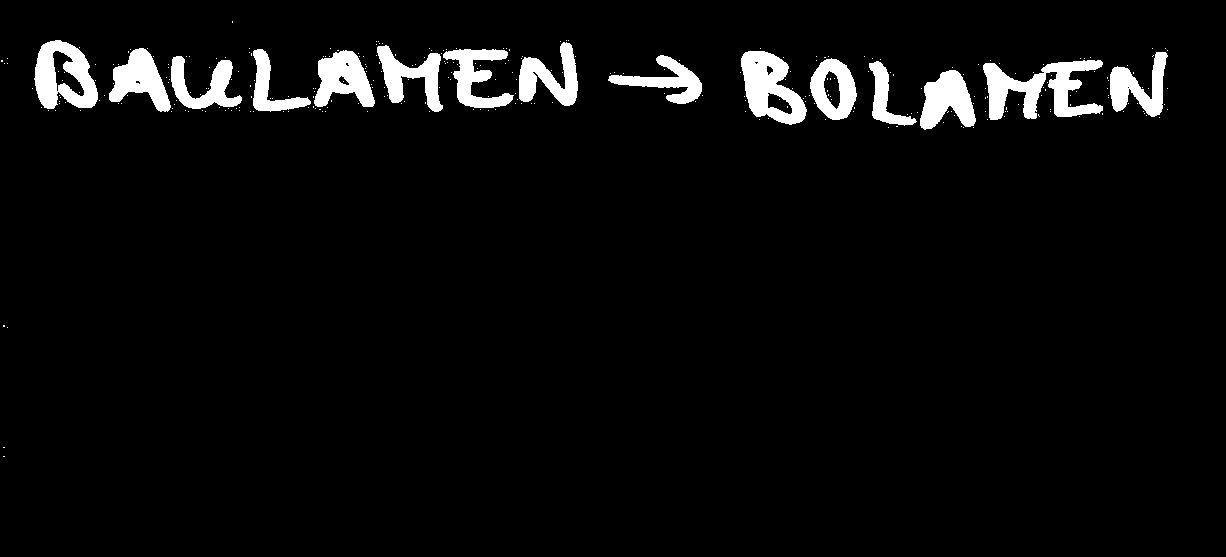 BAULAMEN → BOLAMEN